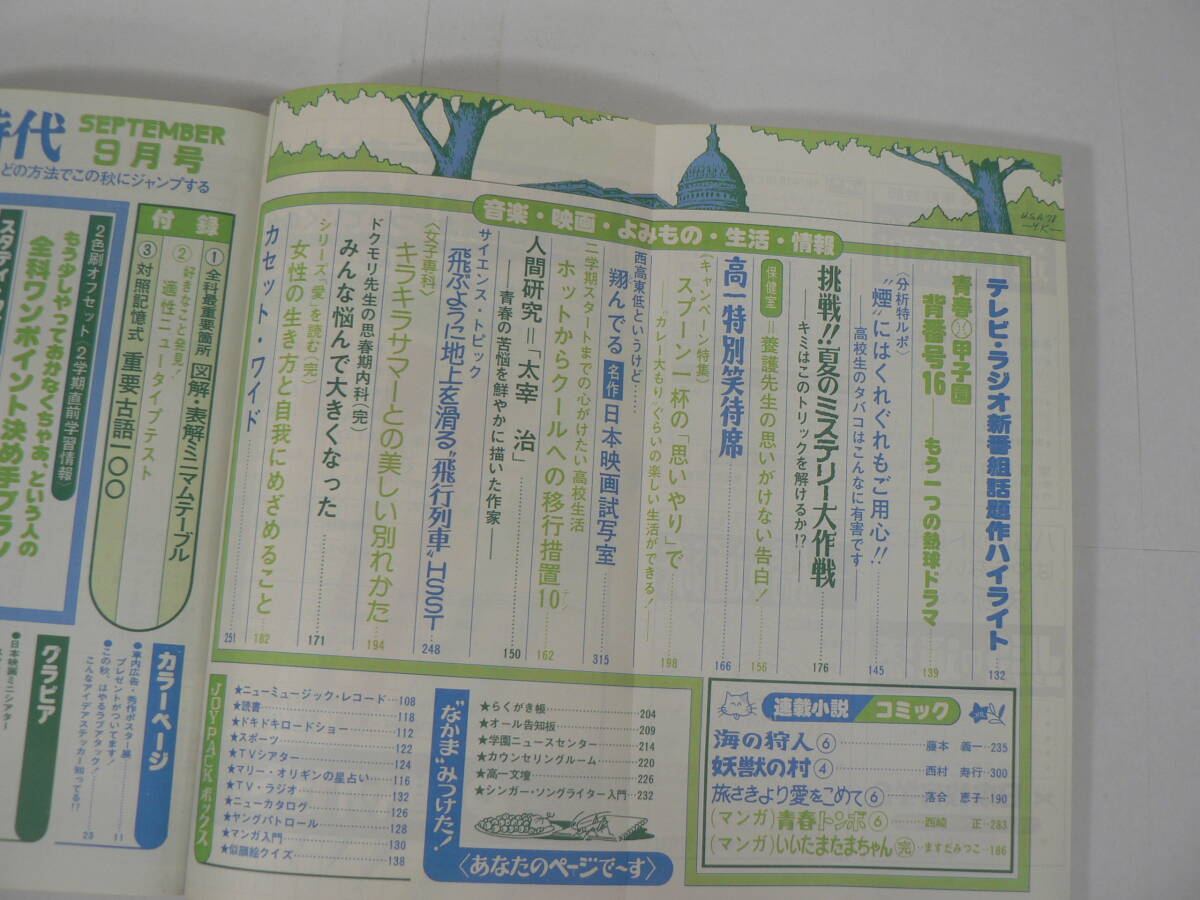 時代
SEPTEMBER
9月号
どの方法でこの秋にジャンプする
付録
①全科最重要箇所 図解・表解ミニマムテーブル
②好きなこと発見! 適性ニュータイプテスト
③対照記憶式 重要古語一〇〇
2色刷オフセット〈2学期直前学習情報〉
もう少しやっておかなくちゃあ、という人の
全科ワンポイント決め手プラン
カラーページ
●車内広告・秀作ポスター展
プレゼントがついてます!
11
●この秋、はやるラブアタック!
こんなアイデアステッカー知ってる!?
23
グラビア
●日本映画ミニシアター
U.S.A.'78
-Y.K-
音楽・映画・よみもの・生活・情報
テレビ・ラジオ新番組話題作ハイライト
132
青春甲子園
背番号16 もう一つの熱球ドラマ
139
〈分析特ルポ〉
“煙”にはくれぐれもご用心!!
高校生のタバコはこんなに有害です
145
挑戦!!夏のミステリー大作戦
キミはこのトリックを解けるか!?
176
保健室
=養護先生の思いがけない告白!
156
高一特別笑待席
166
〈キャンペーン特集〉
スプーン一杯の「思いやり」で
“カレー大もりぐらいの楽しい生活ができる!
198
西高東低というけど……
翔んでる 名作 日本映画試写室
315
二学期スタートまでの心がけたい高校生活
ホットからクールへの移行措置10
テン
162
人間研究=「太宰 治」
―青春の苦悩を鮮やかに描いた作家―
150
サイエンス・トピック
“飛ぶように地上を滑る”飛行列車“HSST
248
〈女子専科〉
キラキラサマーとの美しい別れかた
194
ドクモリ先生の思春期内科(完)
みんな悩んで大きくなった
171
シリーズ「愛を読む」(完)
女性の生き方と自我にめざめること
182
カセット・ワイド
251
JOY PACK ボックス
★ニューミュージック・レコード…108
★読書…118
★ドキドキロードショー…112
★スポーツ…122
★TVシアター…124
★マリー・オリギンの星占い…116
★TV・ラジオ…132
★ニューカタログ…126
★ヤングパトロール…128
★マンガ入門…130
★似顔絵クイズ…138
“なかま”みつけた!
★らくがき帳…204
★オール告知板…209
★学園ニュースセンター…214
★カウンセリングルーム…220
★高一文壇…226
★シンガー・ソングライター入門…232
〈あなたのページで〜す〉
連載小説 コミック
海の狩人⑥…藤本 義一・235
妖獣の村④…西村 寿行・300
旅さきより愛をこめて⑥…落合 恵子・190
(マンガ)青春トンボ⑥…西崎 正・283
(マンガ)いいたまたまちゃん(完)…ますだみつこ・186